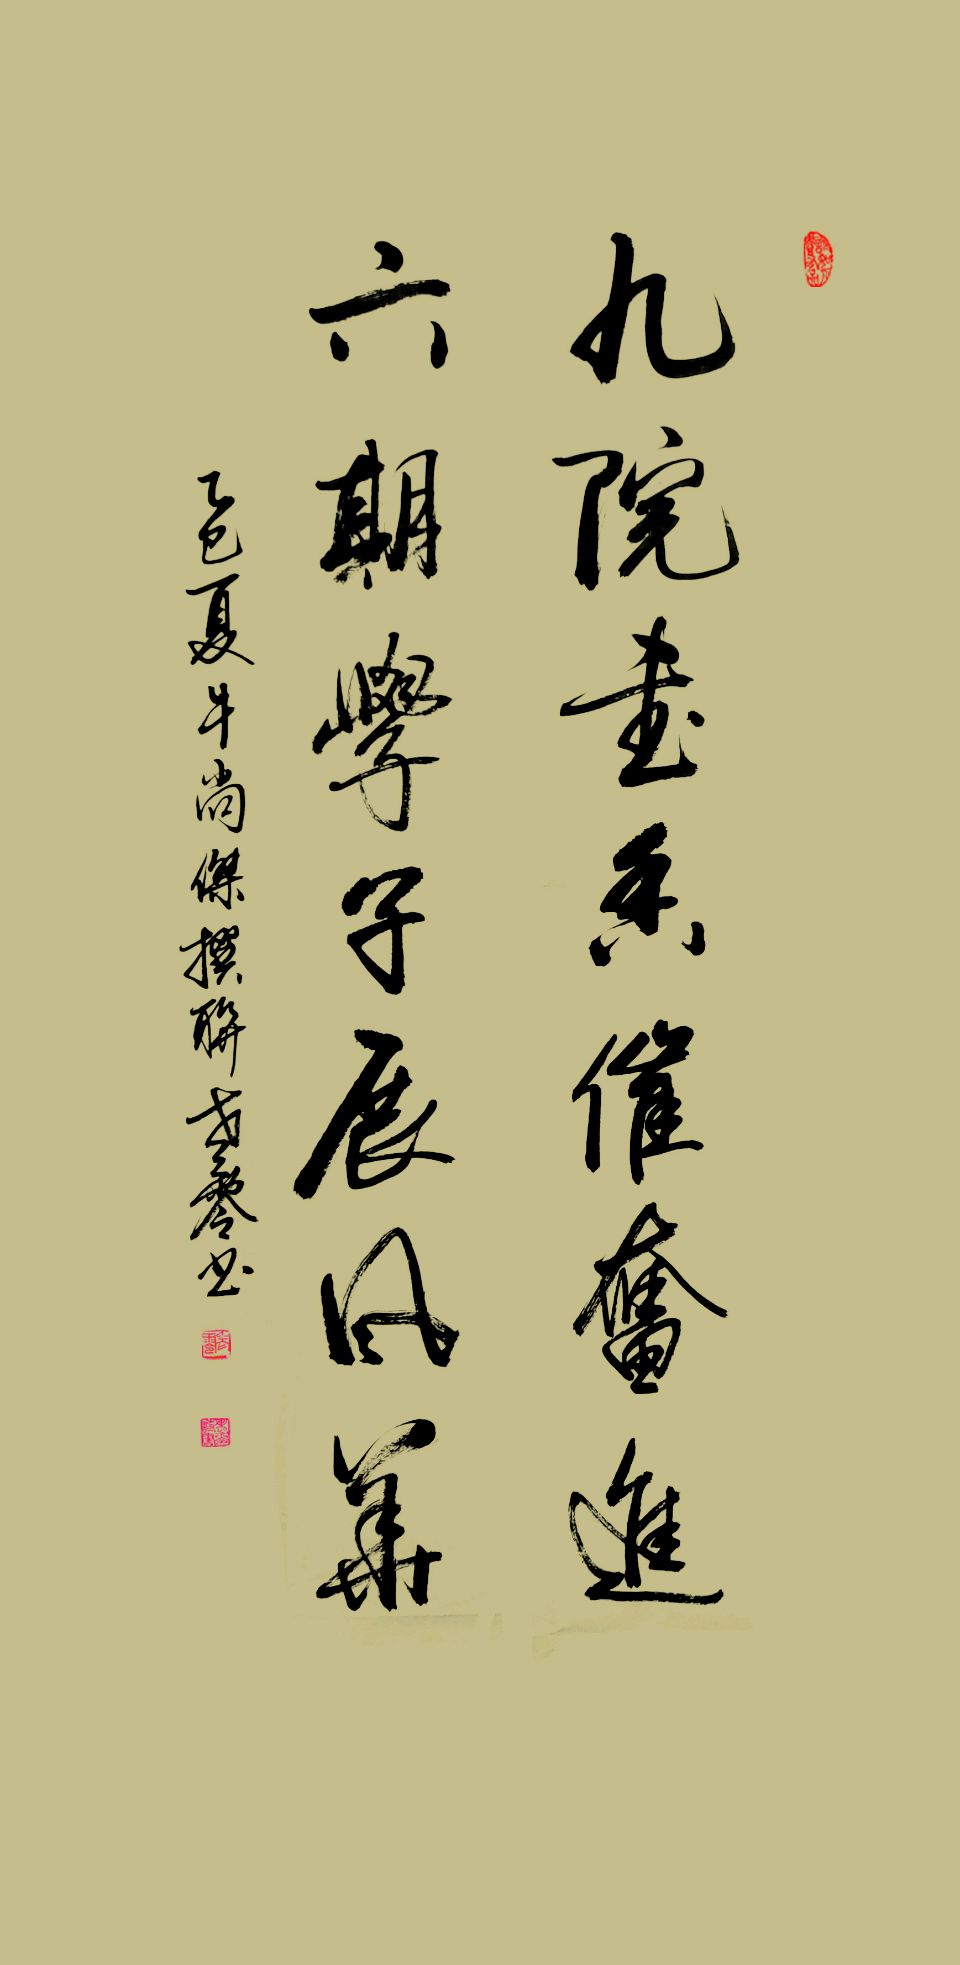 九院書香催奮進
六期學子展風華
乙巳夏牛尚傑撰聯志零书